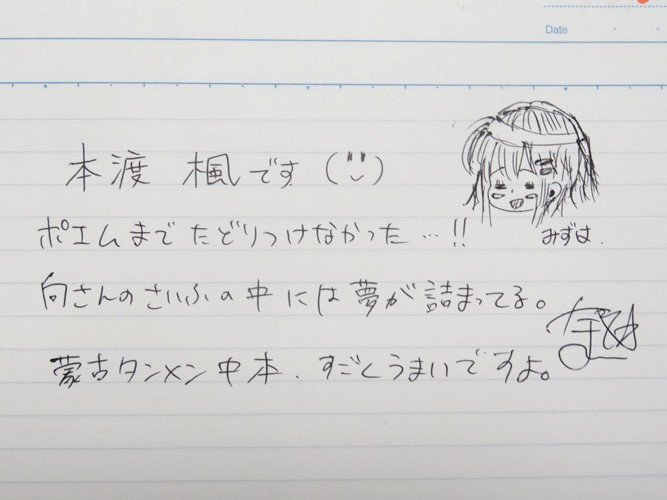 Date
本渡 楓です
みずは.
ポエムまでたどりつけなかった…!!
向さんのさいふの中には夢が詰まってる。
蒙古タンメン中本、すごくうまいですよ。